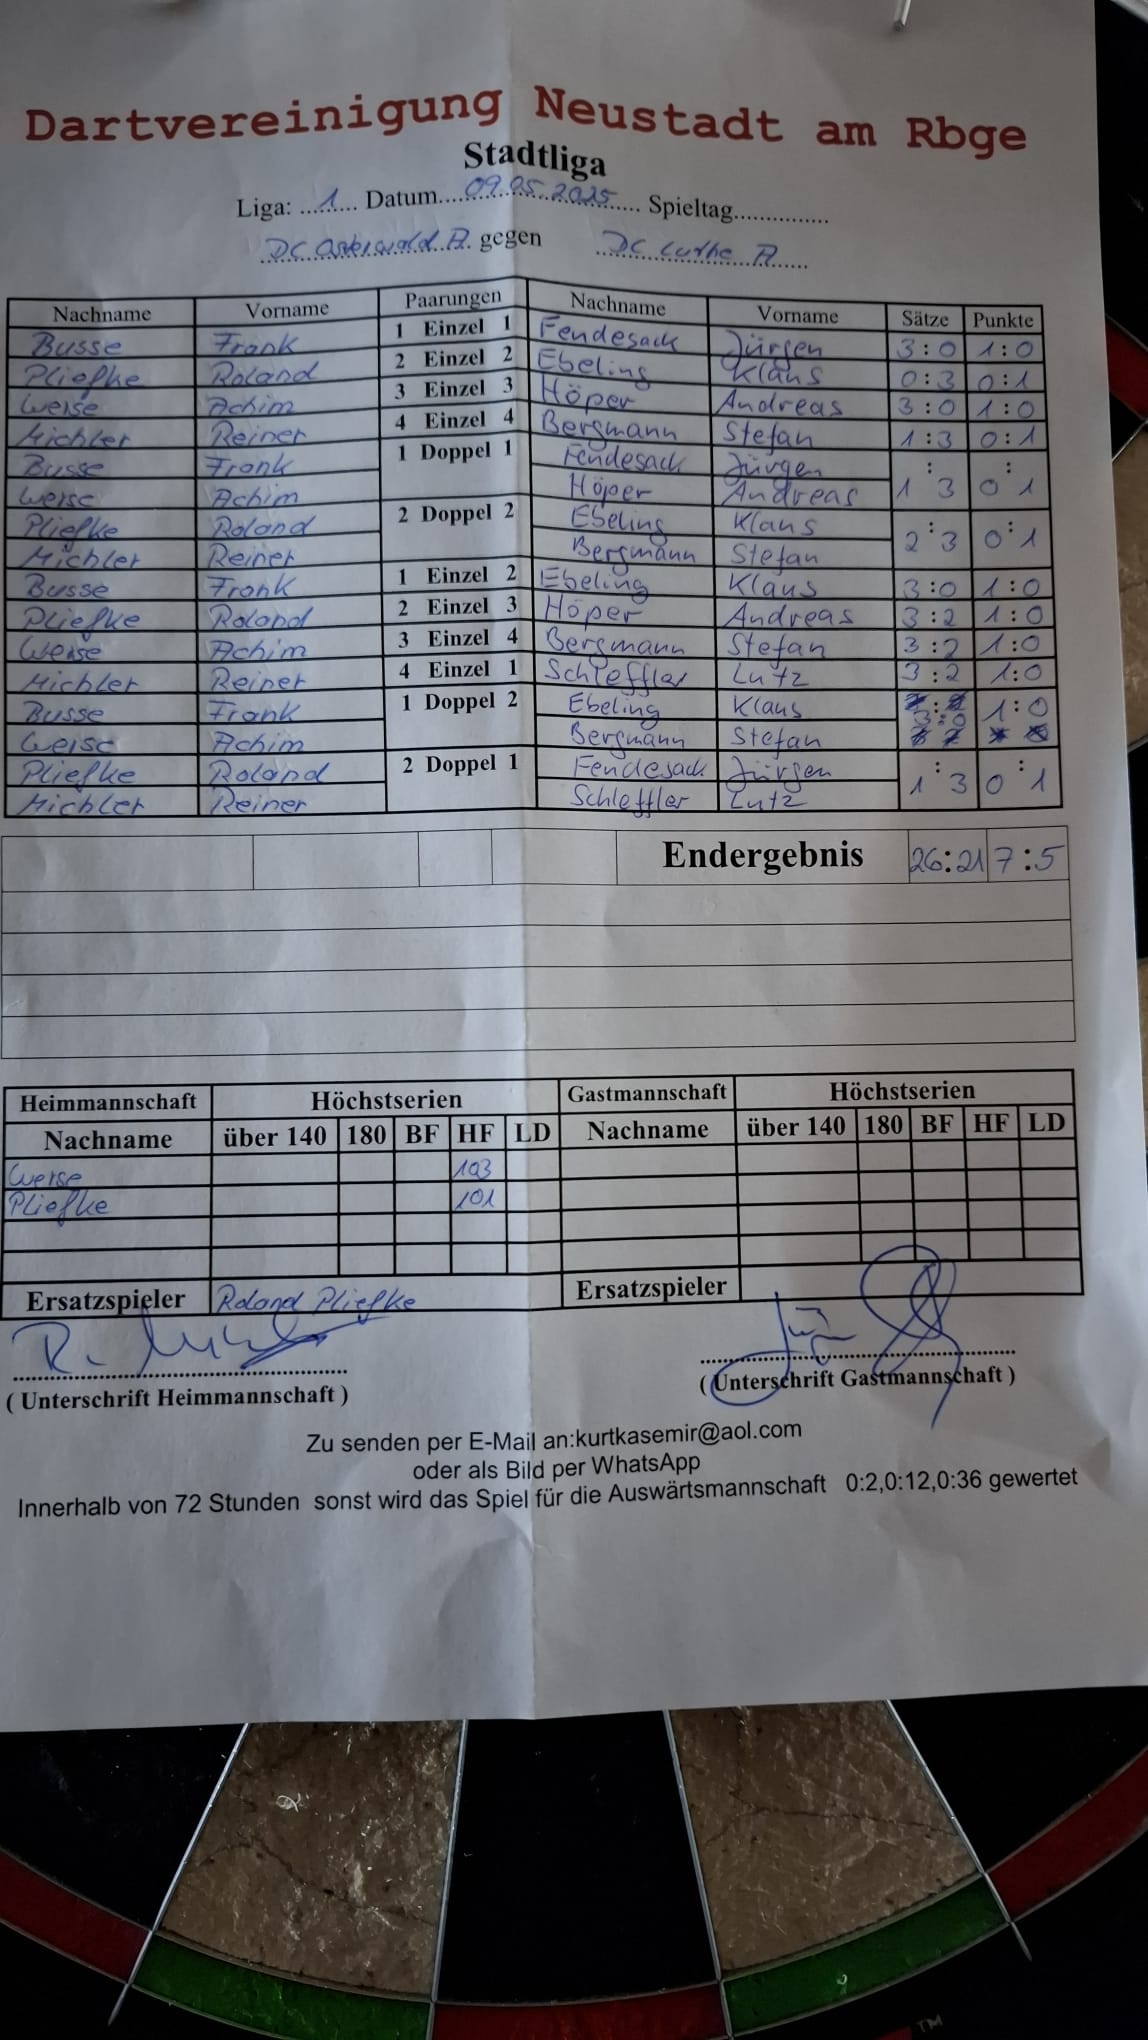 Dartvereinigung Neustadt am Rbge
Stadtliga
Liga: ...1... Datum...09.05.2025... Spieltag...............
DC Osterwald A. gegen DC Luthe A
Nachname Vorname Paarungen Nachname Vorname Sätze Punkte
Busse Frank 1 Einzel 1 Fendesack Jürgen 3:0 1:0
Pliefke Roland 2 Einzel 2 Ebeling Klaus 0:3 0:1
Weise Achim 3 Einzel 3 Höper Andreas 3:0 1:0
Michler Reiner 4 Einzel 4 Bergmann Stefan 1:3 0:1
Busse Frank 1 Doppel 1 Fendesack Jürgen 1:3 0:1
Weise Achim Höper Andreas
Pliefke Roland 2 Doppel 2 Ebeling Klaus 2:3 0:1
Michler Reiner Bergmann Stefan
Busse Frank 1 Einzel 2 Ebeling Klaus 3:0 1:0
Pliefke Roland 2 Einzel 3 Höper Andreas 3:2 1:0
Weise Achim 3 Einzel 4 Bergmann Stefan 3:2 1:0
Michler Reiner 4 Einzel 1 Schleffler Lutz 3:2 1:0
Busse Frank 1 Doppel 2 Ebeling Klaus 3:0 1:0
Weise Achim Bergmann Stefan
Pliefke Roland 2 Doppel 1 Fendesack Jürgen 1:3 0:1
Michler Reiner Schleffler Lutz
Endergebnis 26:21 7:5
Heimmannschaft Höchstserien Gastmannschaft Höchstserien
Nachname über 140 180 BF HF LD Nachname über 140 180 BF HF LD
Weise 103
Pliefke 101
Ersatzspieler Roland Pliefke Ersatzspieler
( Unterschrift Heimmannschaft ) ( Unterschrift Gastmannschaft )
Zu senden per E-Mail an:kurtkasemir@aol.com
oder als Bild per WhatsApp
Innerhalb von 72 Stunden sonst wird das Spiel für die Auswärtsmannschaft 0:2,0:12,0:36 gewertet
TM